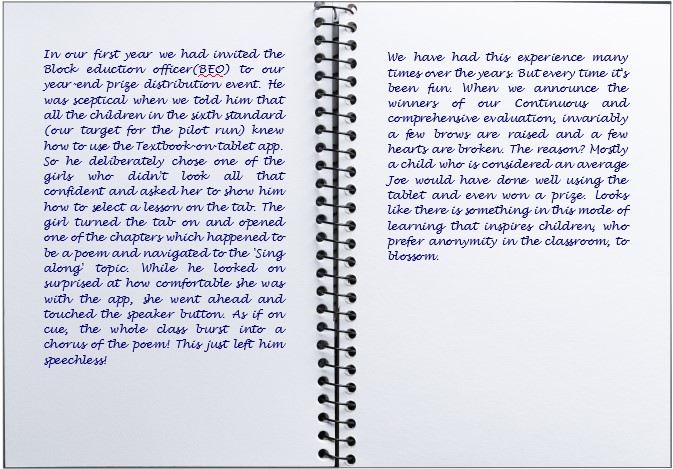 In our first year we had invited the
Block eduction officer(BEO) to our
year-end prize distribution event. He
was sceptical when we told him that
all the children in the sixth standard
(our target for the pilot run) knew
how to use the Textbook-on-tablet app.
So he deliberately chose one of the
girls who didn't look all that
confident and asked her to show him
how to select a lesson on the tab. The
girl turned the tab on and opened
one of the chapters which happened to
be a poem and navigated to the 'Sing
along' topic. While he looked on
surprised at how comfortable she was
with the app, she went ahead and
touched the speaker button. As if on
cue, the whole class burst into a
chorus of the poem! This just left him
speechless!
We have had this experience many
times over the years. But every time it's
been fun. When we announce the
winners of our Continuous and
comprehensive evaluation, invariably
a few brows are raised and a few
hearts are broken. The reason? Mostly
a child who is considered an average
Joe would have done well using the
tablet and even won a prize. Looks
like there is something in this mode of
learning that inspires children, who
prefer anonymity in the classroom, to
blossom.